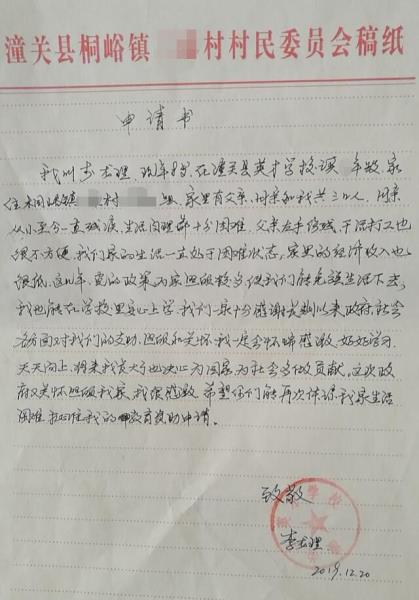 潼关县桐峪镇 村村民委员会稿纸
申请书
我叫李龙理,现年8岁,在潼关县英才学校读 年级,家
住桐峪镇 村 组,家里有父亲、母亲和我共三口人,母亲
从小至今一直残疾,生活自理十分困难,父亲左手伤残,干活打工也
很不方便,我们家的生活一直处于困难状态,家里的经济收入也
很低。这几年,党的政策为家照顾较多使我们能免强生活下去,
我也能在学校里安心上学,我们一家十分感谢长期以来政府、社会
各方面对我们的支助、照顾和关怀,我一定会怀晞感激,好好学习
天天向上,将来我长大了也决心为国家为社会多做贡献,这次政
府又关怀照顾我家,我很感激,希望你们能再次体谅我家生活
困难,批准我的教育资助申请。
致敬
李龙理
2019.12.20